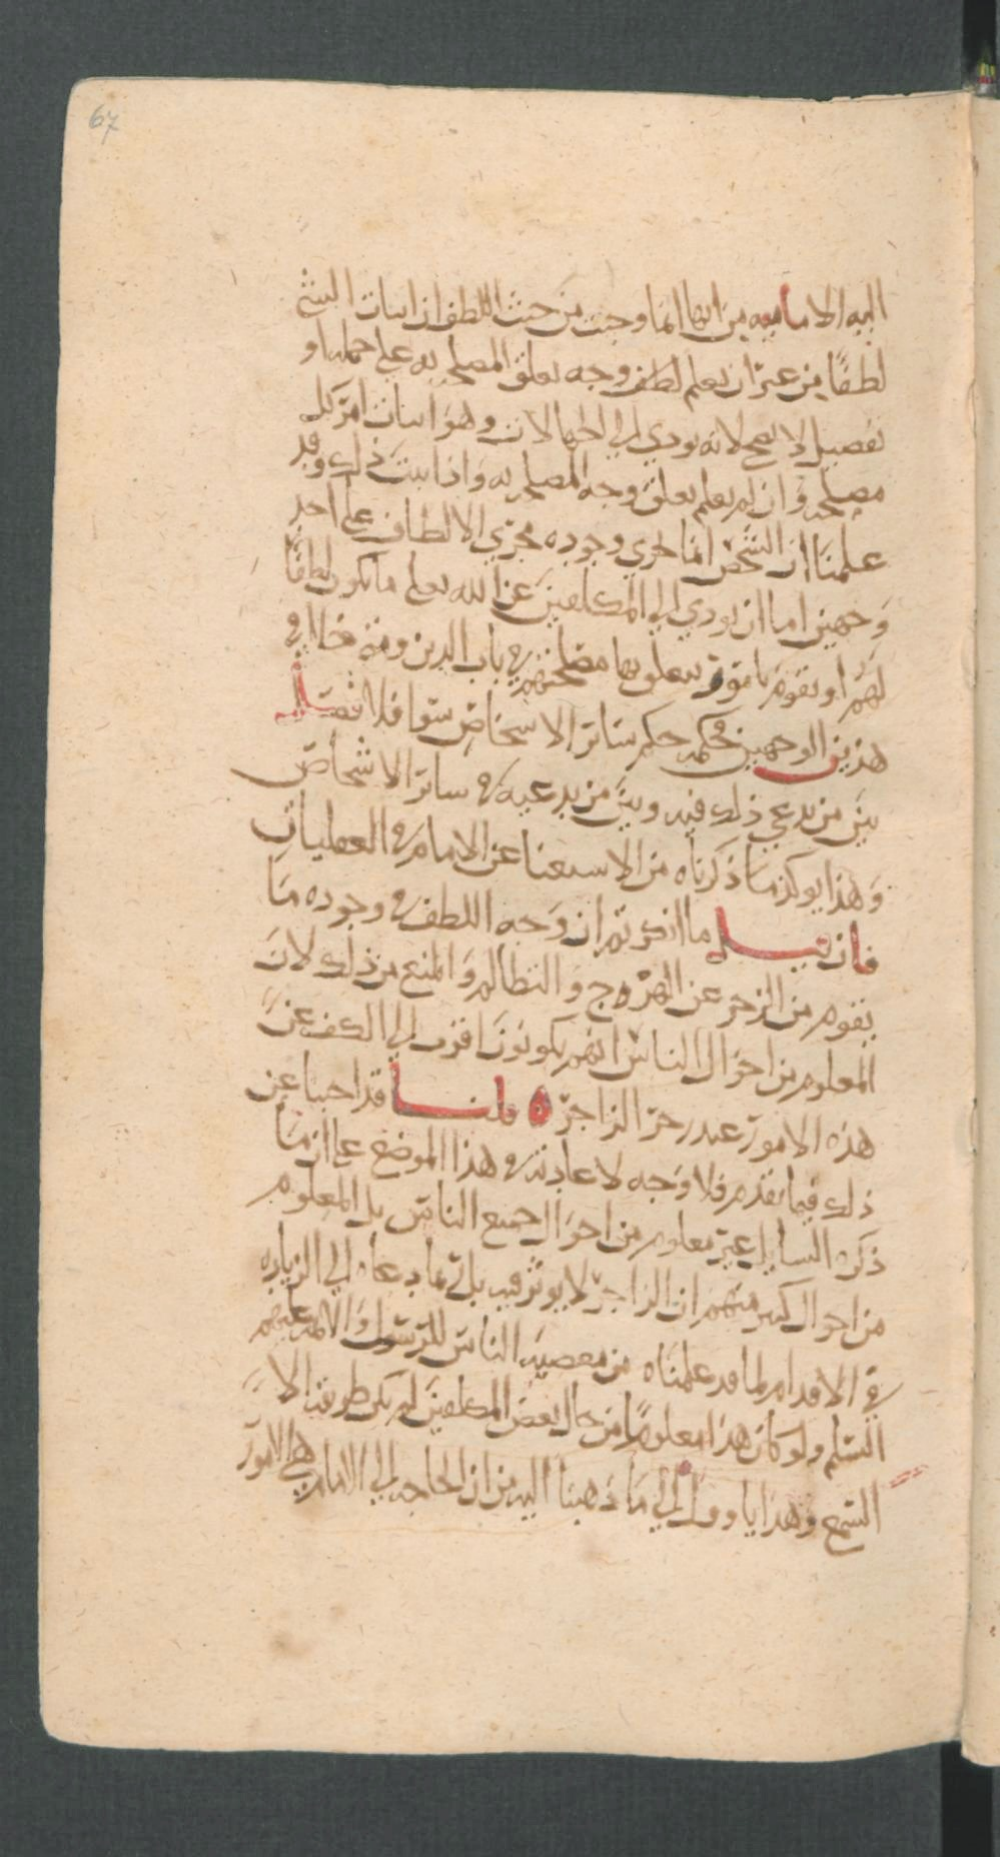 67
اليه الامامية من انها انما وجبت من حيث اللطف ان اثبات الشئ
لطفًا من غير ان يعلم لطف وجه تعلق المصلحه به على جمله او
تفصيل لا يصح لانه يودي الى الجهالات وهو اثبات امر كل
مصلحه وان لم يعلم تعلق وجه المصلحه به واذا ثبت ذلك وقد
علمنا ان الشخص انما يجري وجوده مجري الالطاف على احد
وجهين اما ان يودي الى المكلفين عن الله تعلى ما يكون لطفًا
لهم او يقوم بامور يتعلق بها مصلحتهم في باب الدين ومتى خلا في
هذين الوجهين فحكمه حكم سائر الاشخاص سوا فلا فصل
بين من يدعي ذلك فيه وبين من يدعيه في سائر الاشخاص
وهذا يوكد ما ذكرناه من الاستغنا عن الامام في العقليات
فان قيل ما انكرتم ان وجه اللطف في وجوده ما
يقوم من الزجر عن الهرج والتظالم والمنع من ذلك لان
المعلوم من احوال الناس انهم يكونون اقرب الى الكف عن
هذه الامور عند زجر الزاجر ه قلنا قد اجبنا عن
ذلك فيما تقدم فلا وجه لاعادته في هذا الموضع على ان ما
ذكره السايل غير معلوم من احوال جميع الناس بل المعلوم
من احوال كثير منهم ان الزاجر لا يوثر فيه بل ربما دعاه الى الزياده
في الاقدام لما قد علمناه من معصية الناس للرسول والائمة عليهم
السلم ولو كان هذا معلومًا من حال بعض المكلفين لم يكن طريقه الا
السمع وهذا يا وول الى ما ذهبنا اليه من ان الحاجه الى الامام هي الامور